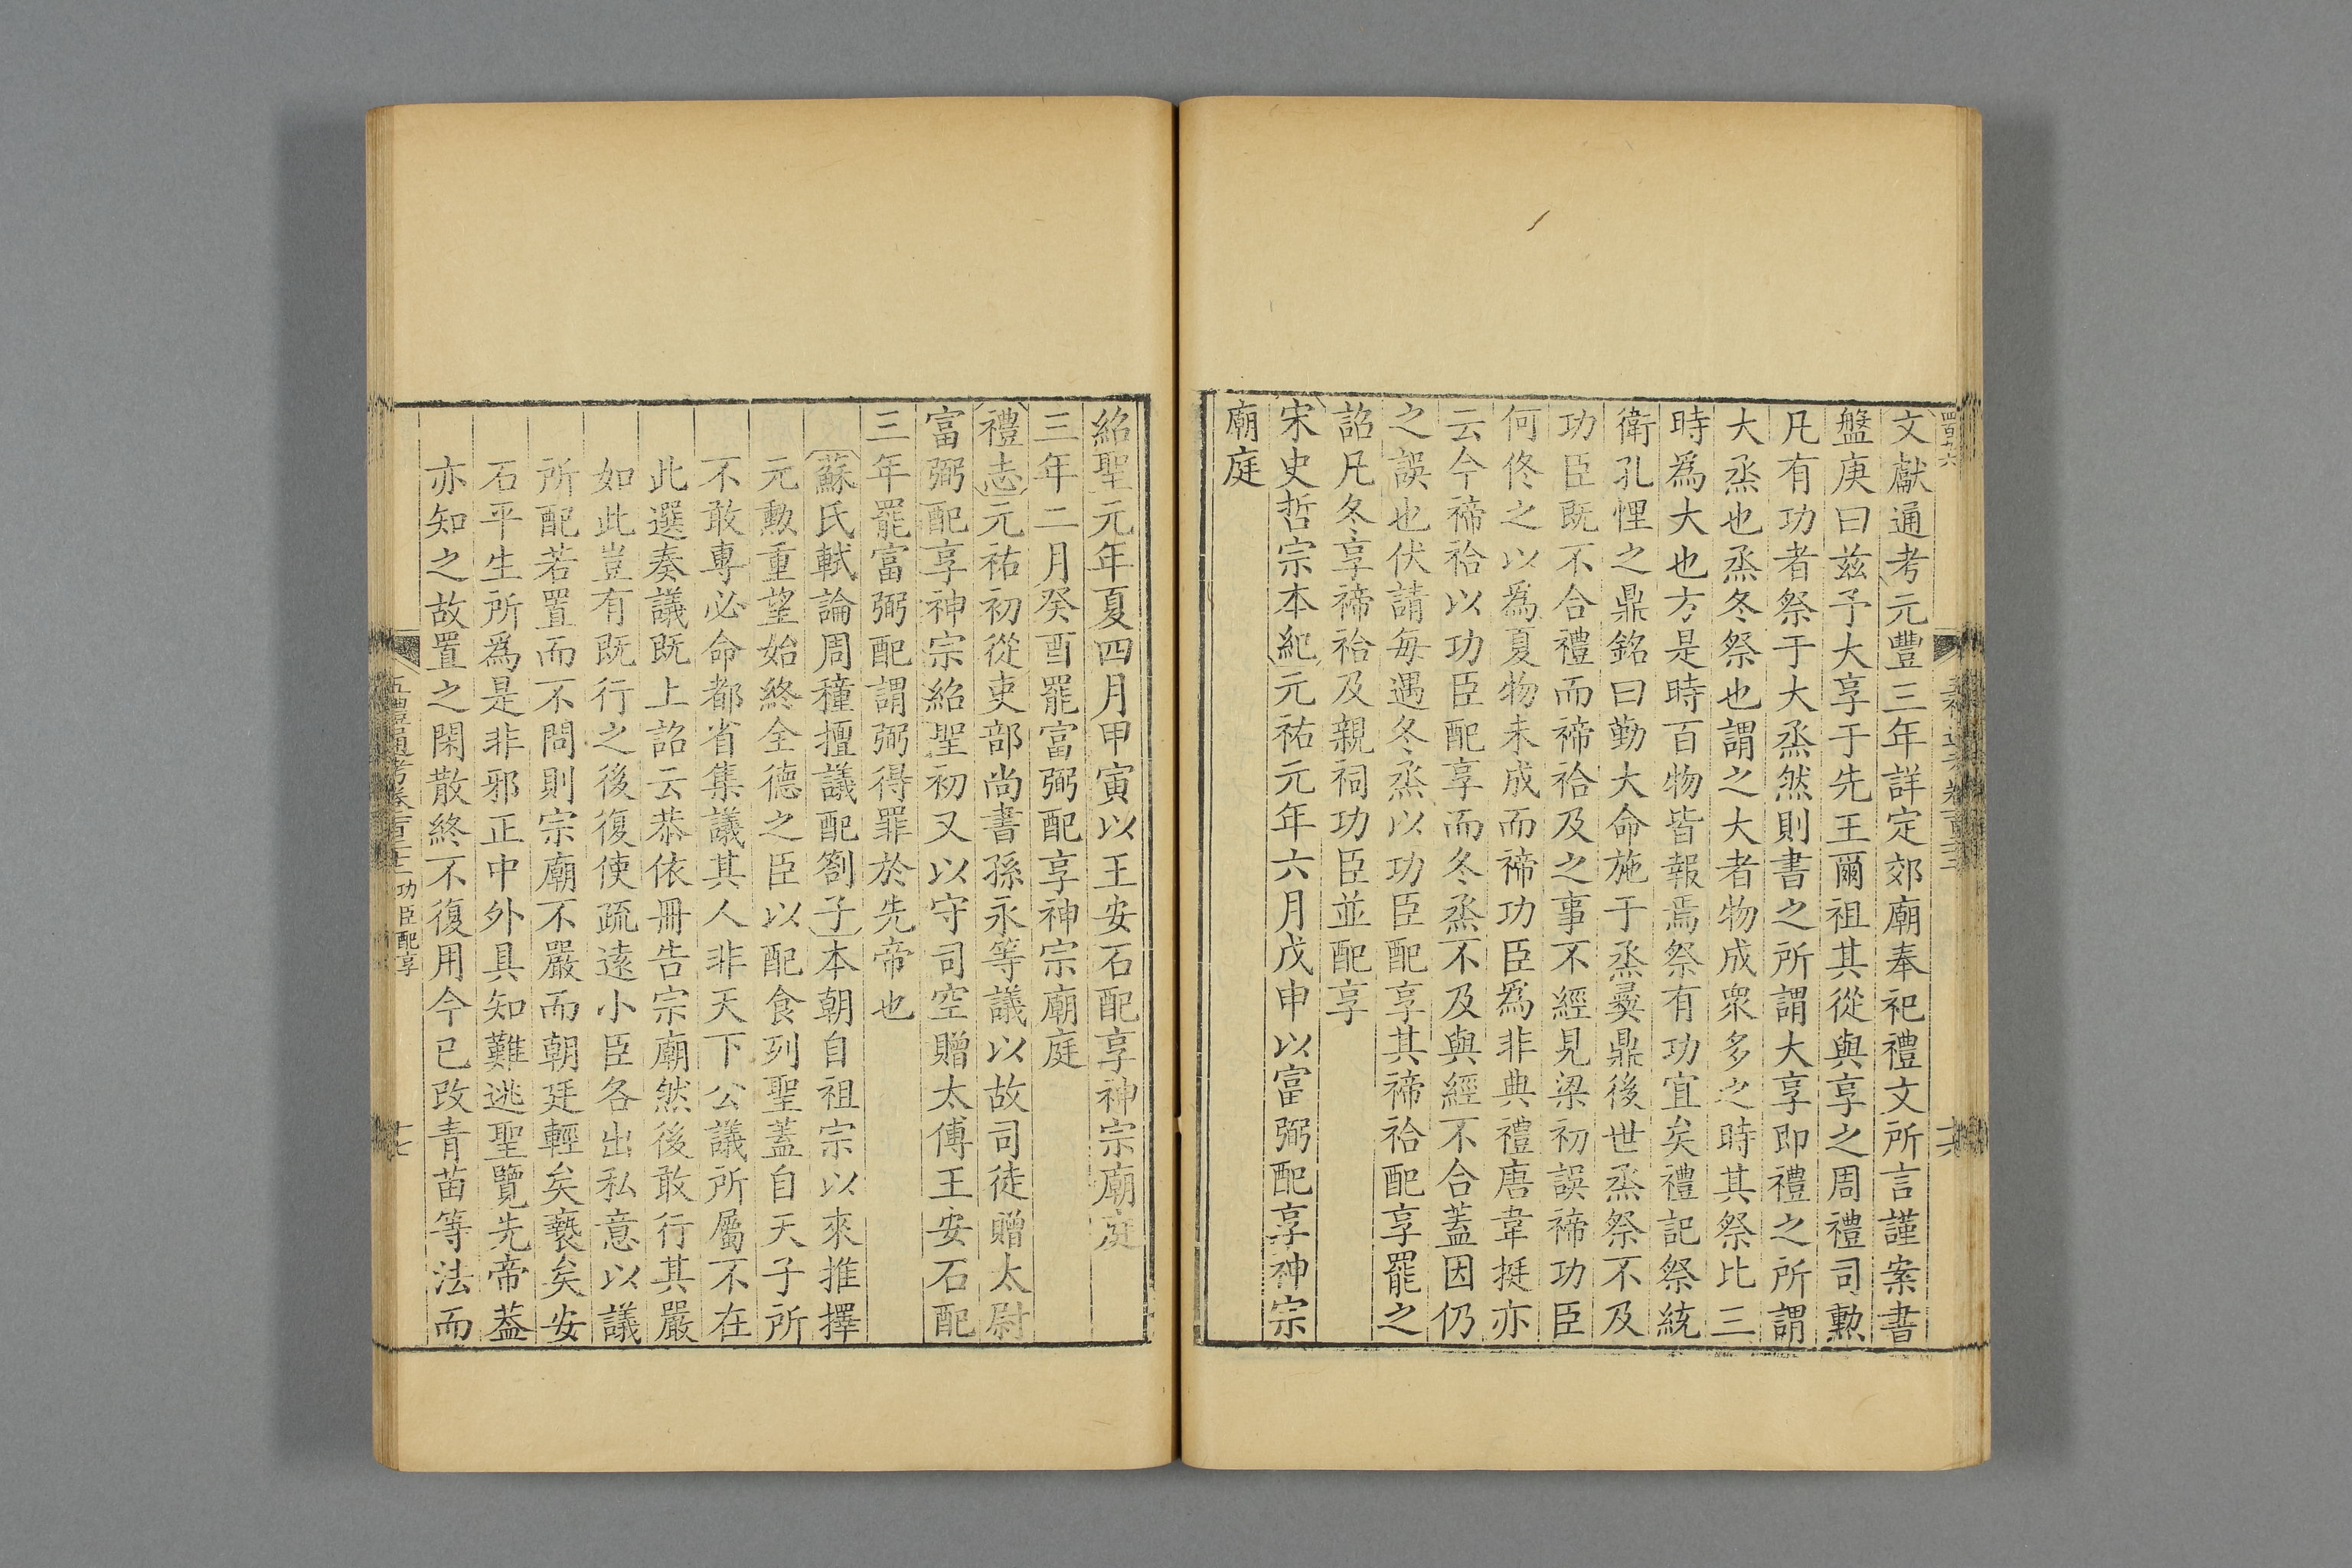 文獻通考元豐三年詳定郊廟奉祀禮文所言謹案書
盤庚曰茲予大享于先王爾祖其從與享之周禮司勲
凡有功者祭于大烝然則書之所謂大享即禮之所謂
大烝也烝冬祭也謂之大者物成衆多之時其祭比三
時爲大也方是時百物皆報焉祭有功宜矣禮記祭統
衛孔悝之鼎銘曰勤大命施于烝彞鼎後世烝祭不及
功臣既不合禮而禘祫及之事不經見梁初誤禘功臣
何佟之以爲夏物未成而禘功臣爲非典禮唐韋挺亦
云今禘祫以功臣配享而冬烝不及與經不合蓋因仍
之誤也伏請每遇冬烝以功臣配享其禘祫配享罷之
詔凡冬享禘祫及親祠功臣並配享
宋史哲宗本紀元祐元年六月戊申以富弼配享神宗
廟庭
紹聖元年夏四月甲寅以王安石配享神宗廟庭
三年二月癸酉罷富弼配享神宗廟庭
禮志元祐初從吏部尚書孫永等議以故司徒贈太尉
富弼配享神宗紹聖初又以守司空贈太傅王安石配
三年罷富弼配謂弼得罪於先帝也
蘇氏軾論周穜擅議配劄子本朝自祖宗以來推擇
元勲重望始終全德之臣以配食列聖蓋自天子所
不敢專必命都省集議其人非天下公議所屬不在
此選奏議既上詔云恭依冊告宗廟然後敢行其嚴
如此豈有既行之後復使疏遠小臣各出私意以議
所配若置而不問則宗廟不嚴而朝廷輕矣褻矣安
石平生所爲是非邪正中外具知難逃聖覽先帝蓋
亦知之故置之閑散終不復用今已改青苗等法而
五禮通考卷一百二十二 功臣配享
十七